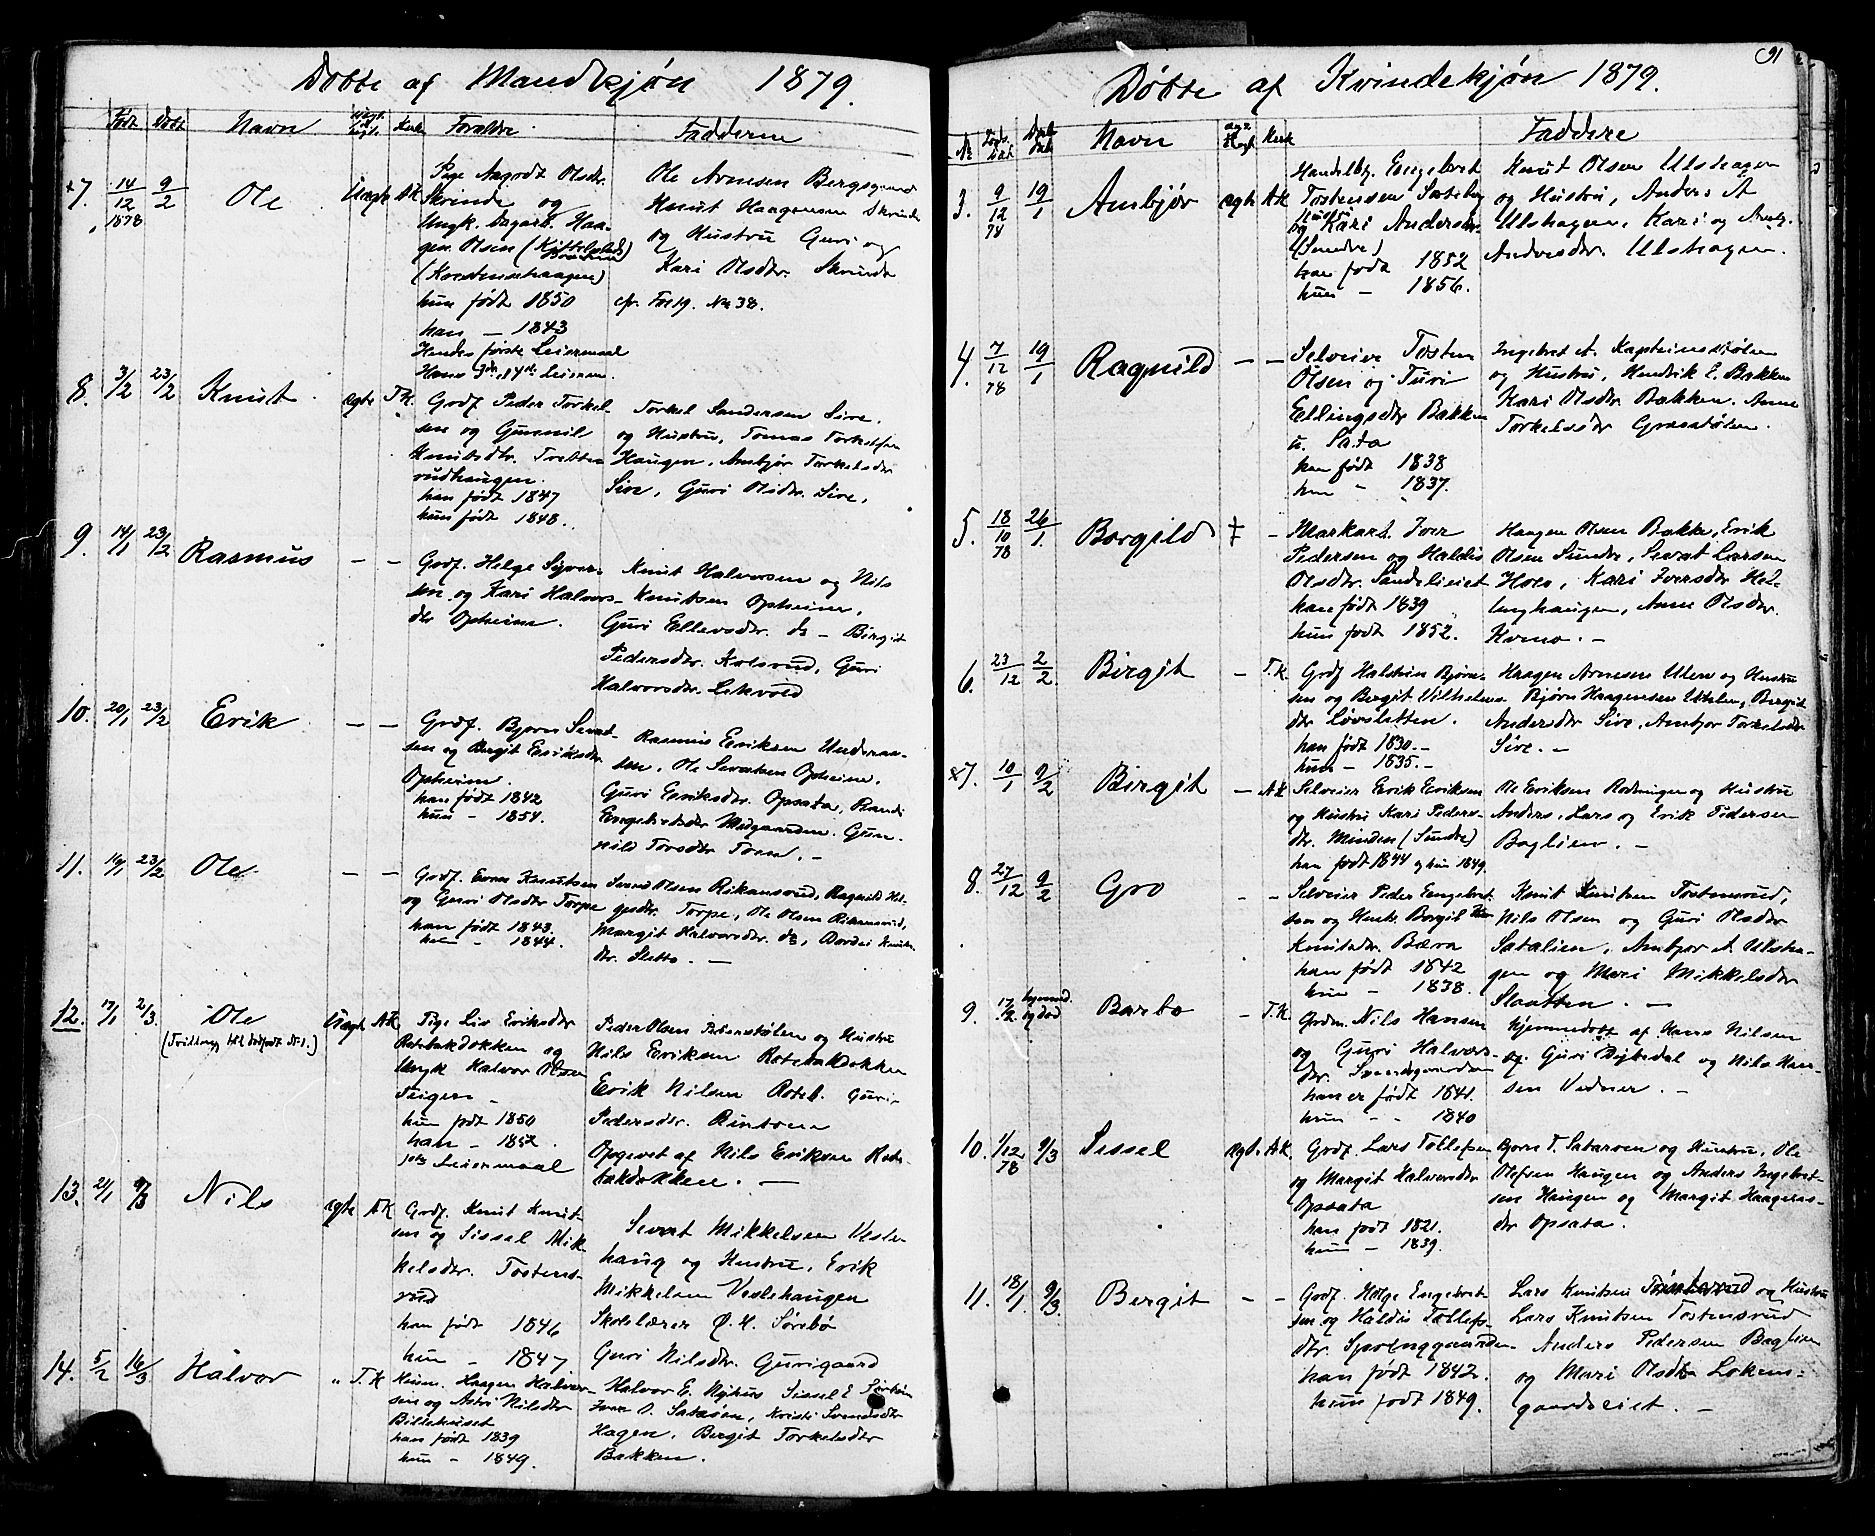 Døbte af Mandkjøn 1879.
Født Døbt Navn Kirke Forældre Faddere
7. 14/12 1878 9/2 Ole Uægte AK
Pige Aagodt Olsdr.
Skrinde og
Ungk. Haa-
gen Olsen
hun født 1850
han – 1843
Hendes første Leiermaal
Hans Leierm.
Ole Arnesen Bergsgaard
Knut Haagensen Skrinde
og Hustru Guri og
Kari Olsdr. Skrinde
cfr. No 38.
8. 3/2 23/2 Knut ægte T.K.
Grdf. Peder Torkel-
sen og Gunnil
Knutsdtr. Tretten
rudhaugen.
han født 1847
hun født 1848.
Torkel Sandersen Sire.
og Hustru, Tomas Torkelsen
Haugen, Ambjør Torkelsdr
Sire, Guri Olsdr. Sire,
9. 14/1 23/2 Rasmus – –
Grdf. Helge Syver-
sen og Kari Halvors-
dr Opheim.
Knut Halvorsen og Nils
Knutsen Opheim,
Guri Ellevsdr. do – Birgit
Pedersdtr. Kolsrud, Guri
Halvorsdtr. Lekvold
10. 20/1 23/2 Erik – –
Grdf. Bjørn Sevat-
sen og Bergit Eriksdr
Opheim.
han født 1842
hun – 1854.
Rasmus Eriksen
Ole Sevatsen Opheim,
Guri Eriksdr. Opsata, Randi
Engebretsdr Midgaarden. Gun-
nild Torsdtr Toen. –
11. 19/1 23/2 Ole – –
Grdf. Even Knutsen
og Guri Olsdtr Torpe
han født 1843.
hun – 1844.
Svend Olsen Rikansrud, Ragnild Hel-
gesdtr. Torpe, Ole Olsen Rikansrud,
Margit Halvorsdtr. do, Bardei Knuts-
dr. Sletto. –
12. 17/1 2/3 Ole Uægte AK
(Tvilling til dødfødt No 1.)
Pige Liv Eriksdtr
Rotebakdokken og
Ungk Halvor Olsen
Teigen –
hun født 1850
han – 1852.
1ste Leiermaal
Peder Olsen og Hustru
Nils Eriksen Rotebakdokken
Erik Nilsen Roteb. Guri
Pedersdtr. Runtom
Opgivet af Nils Eriksen Rote-
bakdokken. –
13. 21/1 9/3 Nils ægte AK
Grdf. Knut Knut-
sen og Sissel Mik-
kelsdtr. Tostens-
rud
han født 1846
hun – 1847.
Sevat Mikkelsen Vesle-
haug og Hustru, Erik
Mikkelsen Veslehaugen
Skolelærer Ø. M. Sørebø
Guri Nilsdtr. Gurigaard
14. 5/2 16/3 Halvor " T.K
Husm. Haagen Halvor-
sen og Astri Nilsdtr
Billehuset
han født 1839
hun – 1849.
Halvor E. Nyhus Sissel E
Iver O. Satasøen, Kristi Svendsdtr
Hagen, Bergit Torkelsdtr
Bakken.
91
Døbte af Kvindekjøn 1879.
No Døbt Navn Kirk Faddere
3. 9/12 78 19/1 Ambjør ægte AK
Handelbtj. Engebret
Tostensen Sateby
og Hustru Kari Andersdtr
(Sundre)
han født 1852
hun – 1856.
Knut Olsen Ulshagen
og Hustru, Anders A
Ulshagen, Kari og Amb.
Andersdtr. Ulshagen.
4. 7/12 78 19/1 Ragnild – –
Selveier Tosten
Olsen og Turi
Ellingsdtr Bakken
u. Sata
han født 1838
hun – 1837.
Ingebret A. Kapteinsstølen
og Hustru, Hendrik E. Bakken
Kari Olsdtr. Bakken. Anne
Torkelsdtr Grasstølen.
5. 18/10 78 26/1 Borgild ‡ –
Markart. Iver
Pedersen og Haldis
Olsdtr. Sandeleiet
han født 1839
hun født 1852.
Haagen Olsen Bakke, Erik
Olsen Sundre, Sevat Larsen
Hovo, Kari Iversdtr Hel-
linghaugen, Anne Olsdtr.
Hovo. –
6. 23/12 2/2 Birgit – T.K
Grdf Halstein Bjørn-
sen og Bergit Vilhelms
dtr Løvsletten.
han født 1830. –
hun – 1835. –
Haagen Arnesen Ulen og Hustru
Bjørn Haagensen Uhlen, Bergit
Andersdtr Sire, Ambjør Torkelsdtr
Sire. –
7. 10/1 9/2 Birgit – AK
Selveier Erik Eriksen
og Hustru Kari Peders-
dtr. Minden (Sundre)
han født 1844 og hun 1849
Ole Eriksen Rodningen og Hustru
Anders, Lars og Erik Pedersen
Baglien. –
8. 27/12 9/2 Gro – –
Selveier Peder Engebret-
sen og Hustr. Borgil
Knutsdtr. Bæra
han født 1842
hun – 1838.
Knut Knutsen Tostensrud,
Nils Olsen og Guri Olsdtr
Satalien, Ambjør A. Ulsha-
gen og Mari Mikkelsdtr
Slaatten. –
9. 17/2 hjemmedøbt Barbo – T.K.
Grdm. Nils Hansen
og Guri Halvors-
dtr. Svensgaarden
han er født 1841.
hun – – 1840
hjemmedøbt af Hans Nilsen
og Guri Dybsdal og Nils Han-
sen Vedner. –
10. 1/12 78 9/3 Sissel ægt. AK
Grdf. Lars Tollefsen
og Margit Halvorsdtr
Opsata
han født 1821.
hun – 1839.
Bjørn T. Sataroen og Hustru, Ole
Olefsen Haugen og Anders Ingebret-
sen Haugen og Margit Haagens-
dtr Opsata.
11. 18/1 9/3 Bergit – –
Grdf. Helge Engebret-
sen og Haldis Tollefs-
dtr. Sponggaarden
han født 1842.
hun født 1849.
Lars Knutsen og Hustru
Lars Knutsen Tostensrud
Anders Pedersen Baglien
og Mari Olsdtr Lokens-
gaardseiet. –